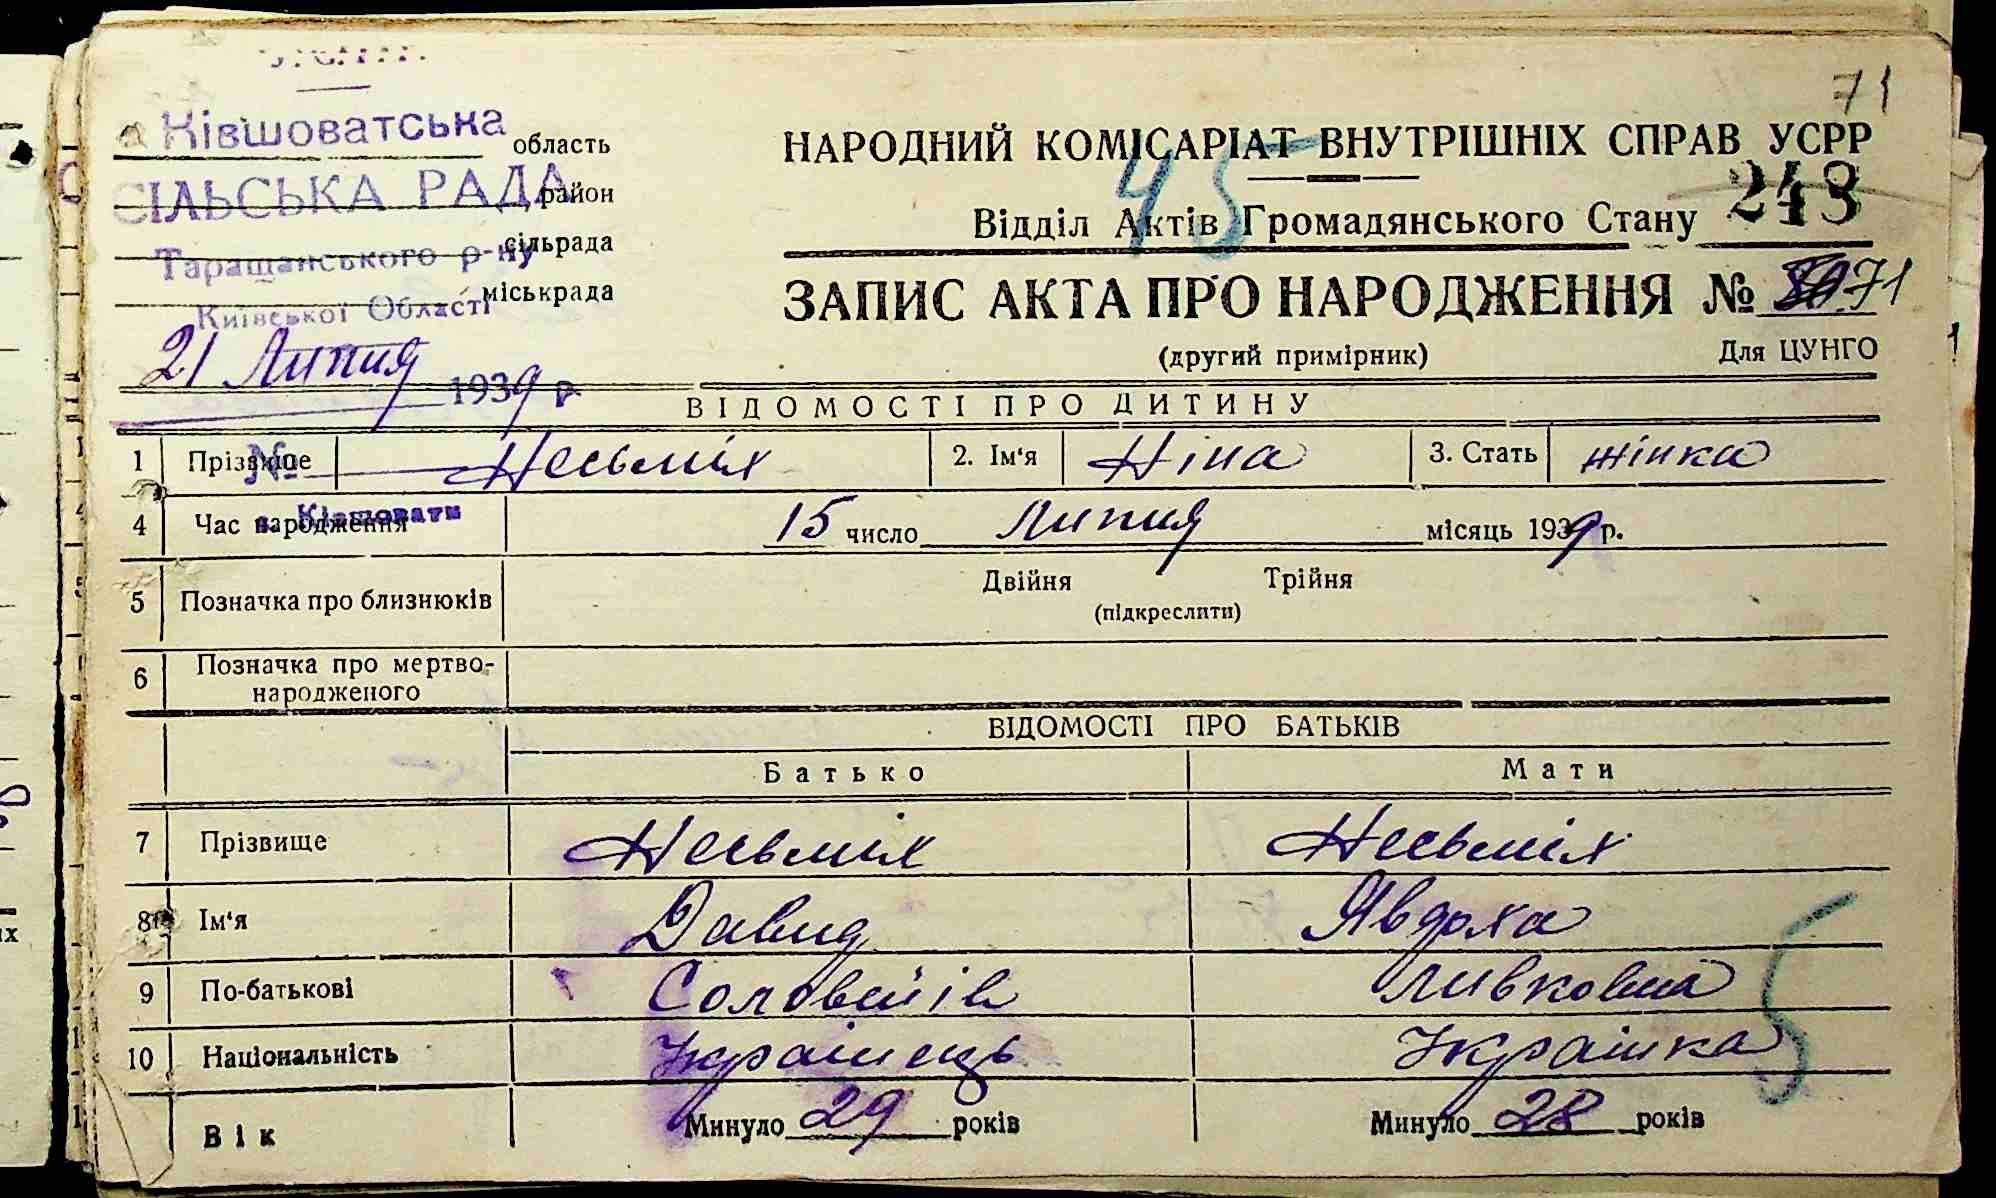 71
Ківшоватська область
СІЛЬСЬКА РАДА район
Таращанського р-ну сільрада
Київської Області міськрада
21 Липня 1939 р.
№
с. Ківшовати
НАРОДНИЙ КОМІСАРІАТ ВНУТРІШНІХ СПРАВ УСРР
45
Відділ Актів Громадянського Стану 248
ЗАПИС АКТА ПРО НАРОДЖЕННЯ № 71
(другий примірник) Для ЦУНГО
ВІДОМОСТІ ПРО ДИТИНУ
1 Прізвище Несьміх 2. Ім‘я Ніна 3. Стать жінка
4 Час народження 15 число Липня місяць 1939 р.
5 Позначка про близнюків Двійня Трійня
(підкреслити)
6 Позначка про мертво-
народженого
ВІДОМОСТІ ПРО БАТЬКІВ
Батько Мати
7 Прізвище Несьміх Несьміх
8 Ім‘я Давид Явдоха
9 По-батькові Соловейів Ливковна
10 Національність Українець Українка
5
Вік Минуло 29 років Минуло 28 років